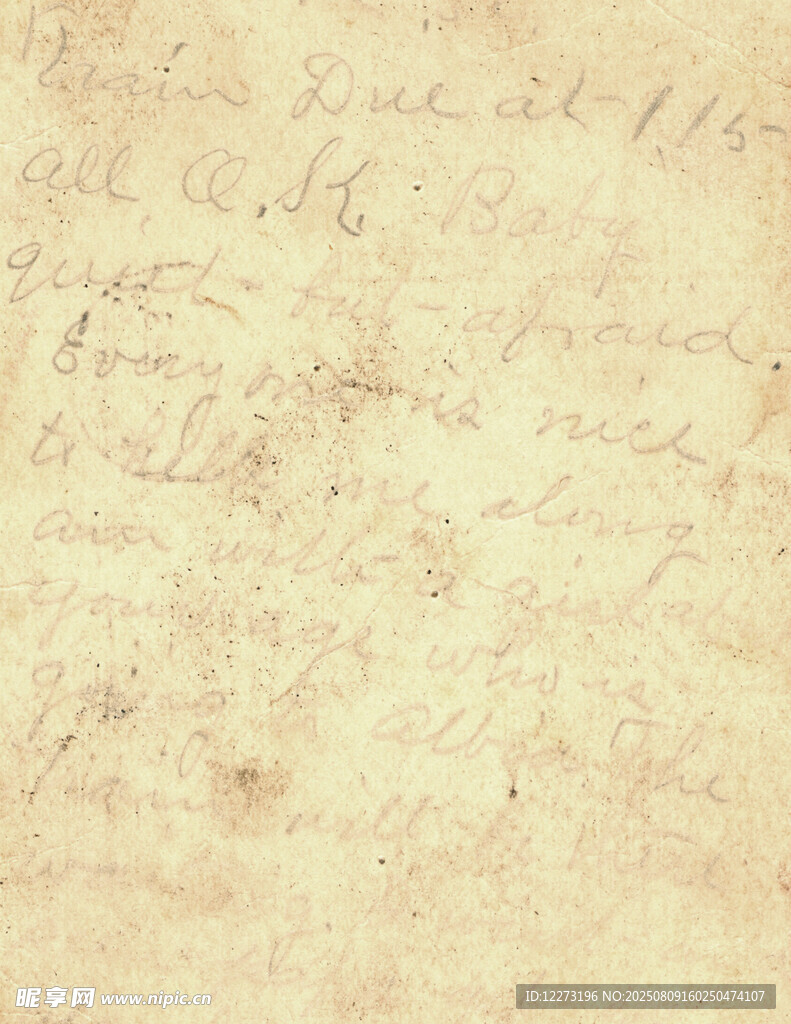 Train Due at 115
all O.K. Baby
quiet - but - afraid.
Everyone is nice
to help me along
am with a girl
your age who is
going Albia The
Train will be
昵享网 www.nipic.cn
ID:12273196 NO:20250809160250474107